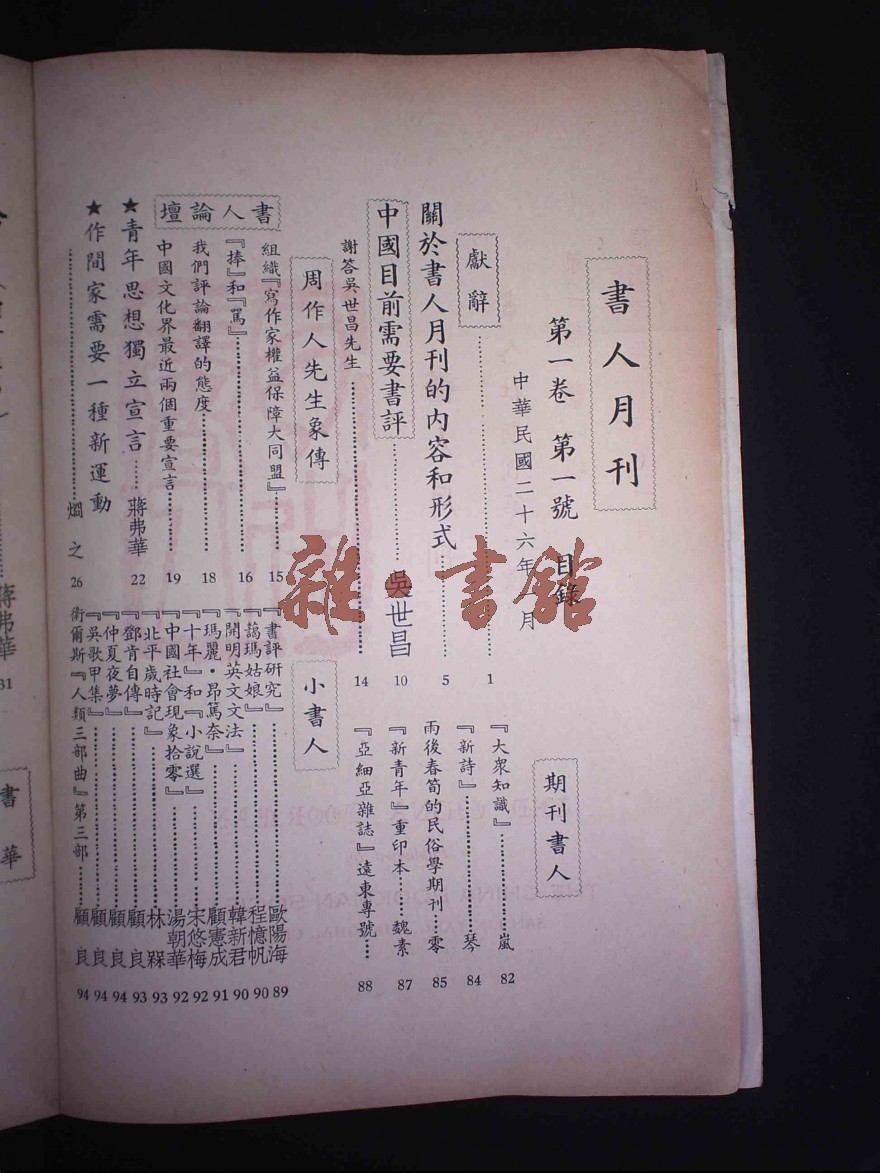 書人月刊
第一卷 第一號 目錄
中華民國二十六年 月
獻辭……1
關於書人月刊的內容和形式……5
中國目前需要書評……吳世昌 10
謝答吳世昌先生……14
周作人先生象傳
書人論壇
組織『寫作家權益保障大同盟』……15
『捧』和『罵』……16
我們評論翻譯的態度……18
中國文化界最近兩個重要宣言……19
★青年思想獨立宣言……蔣弗華 22
★作間家需要一種新運動
……烱之 26
期刊書人
『大衆知識』……嵐 82
『新詩』……琴 84
雨後春筍的民俗學期刊……零 85
『新青年』重印本……魏素 87
『亞細亞雜誌』遠東專號……88
小書人
『書評研究』……歐陽海 89
『藹瑪姑娘』……程憶帆 90
『開明英文文法』……韓新君 90
『瑪麗・昂篤奈』……顧憲成 91
『十年』和『小說選』……宋悠梅 92
『中國社會現象拾零』……湯朝華 92
『北平歲時記』……林寀 93
『鄧肯自傳』……顧良 93
『仲夏夜夢』……顧良 94
『吳歌甲集』……顧良 94
衛爾斯『人類三部曲』第三部……顧良 94
雜・書館
蔣弗華
31
書
華